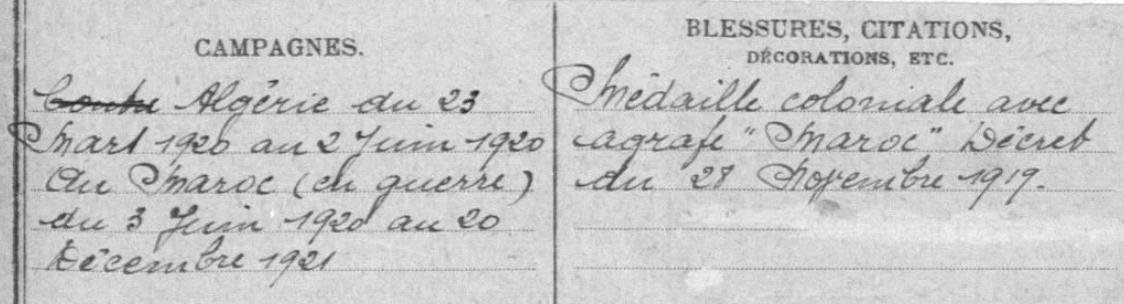 CAMPAGNES.
Contre Algérie du 23
Mars 1920 au 2 Juin 1920
Au Maroc (en guerre)
du 3 Juin 1920 au 20
Décembre 1921
BLESSURES, CITATIONS,
DÉCORATIONS, ETC.
Médaille coloniale avec
agrafe "Maroc" Décret
du 28 Novembre 1919.